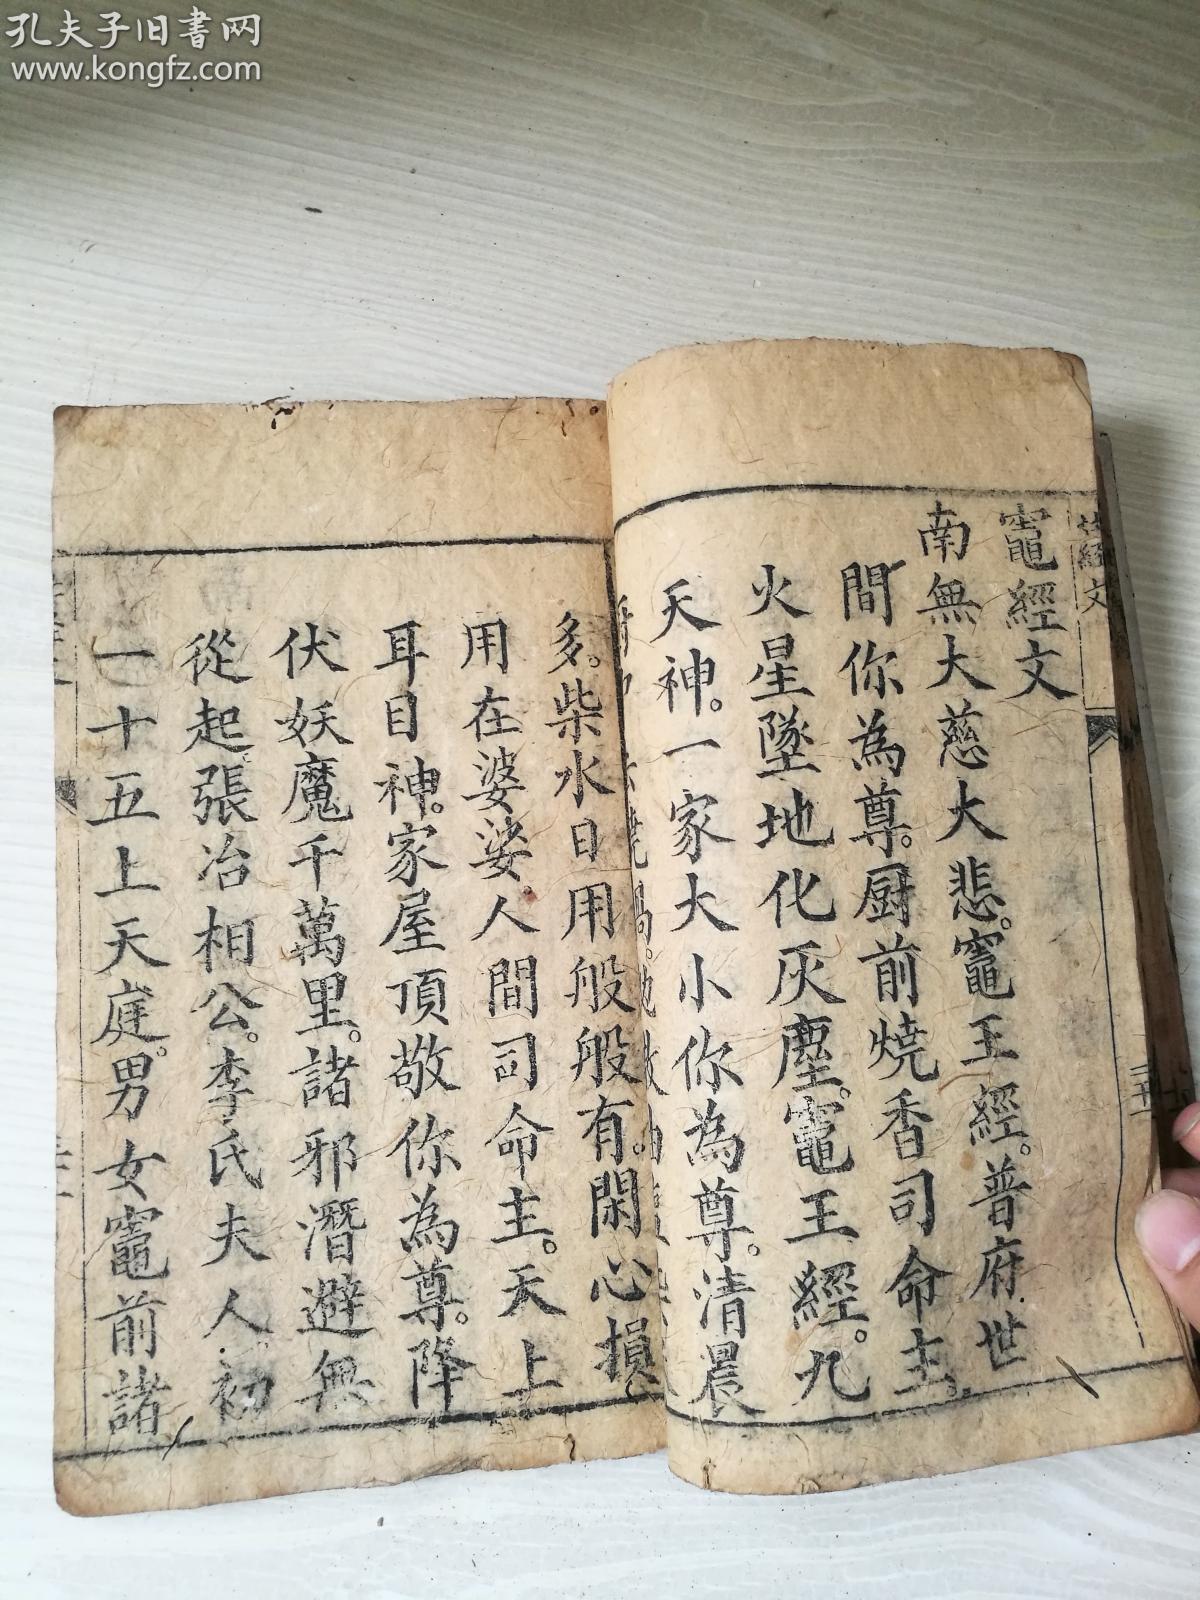 孔夫子旧書网
www.kongfz.com
经文
竈經文
南無大慈大悲。竈王經。普府世
間你為尊。厨前燒香司命主。
火星墜地化灰塵。竈王經。九
天神。一家大小你為尊。清晨
多。柴水日用般般有。閑心損
用在婆娑。人間司命主。天上
耳目神。家屋頂敬你為尊。降
伏妖魔千萬里。諸邪潛避無
從起。張冶相公。李氏夫人。初
一十五上天庭。男女竈前諸